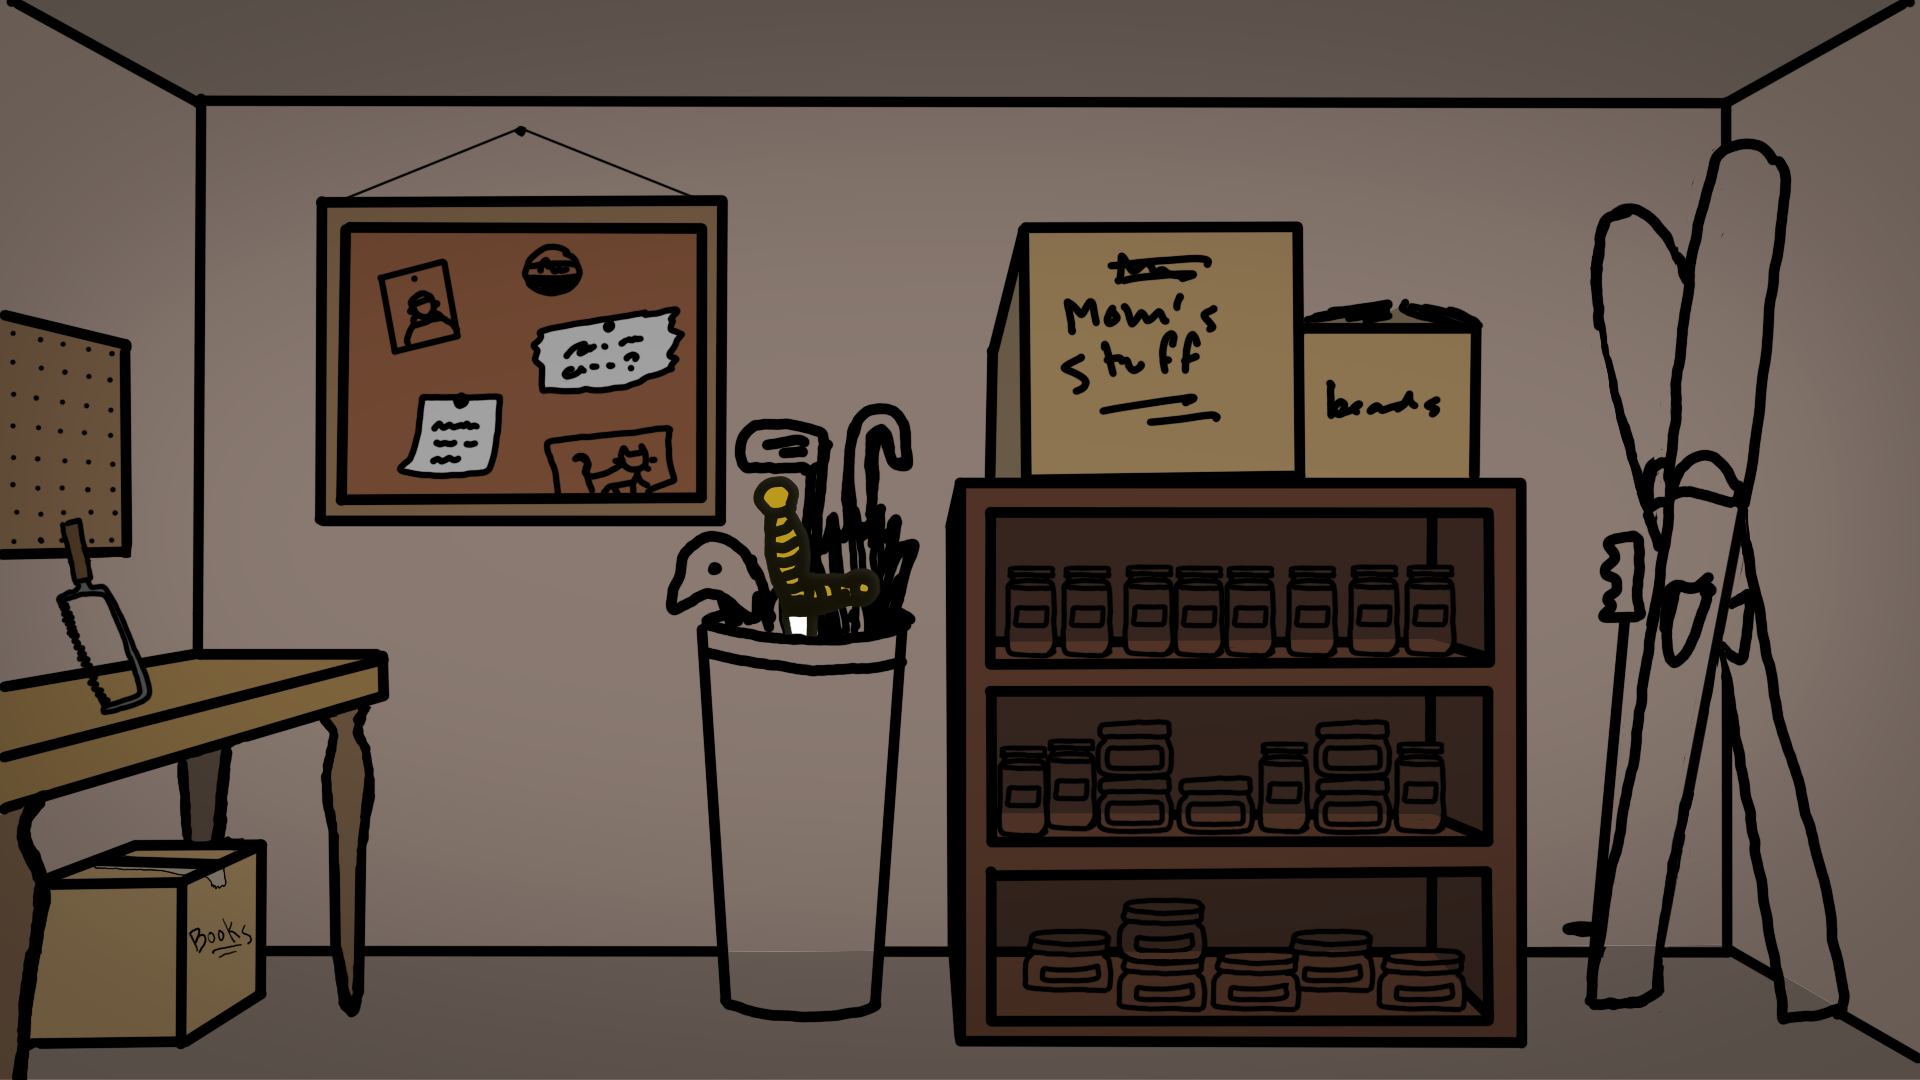 Mom's
stuff
beads
Books